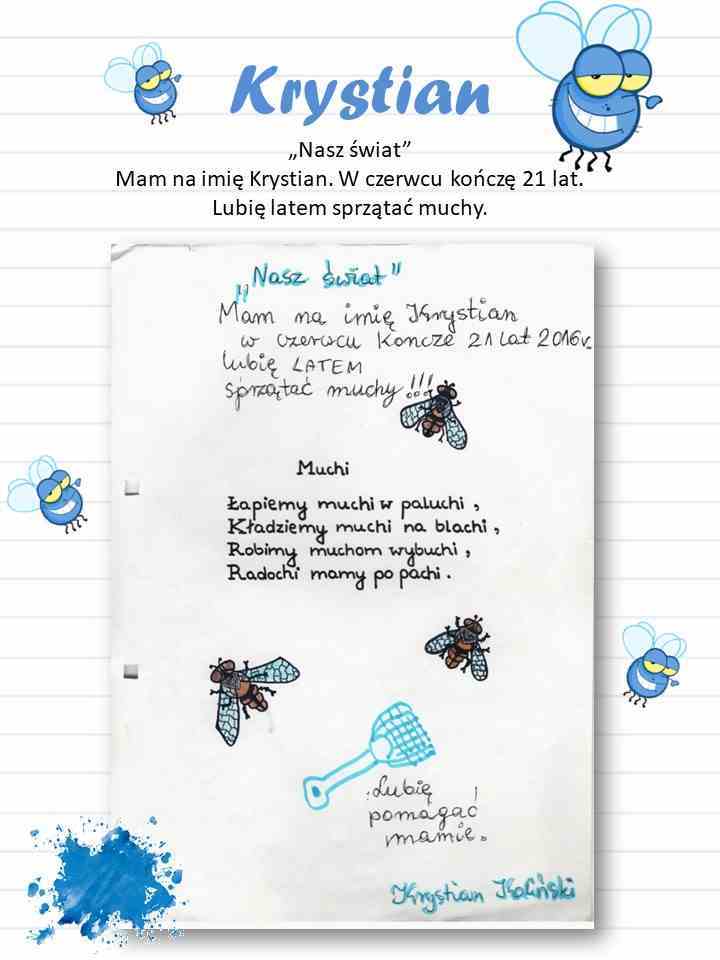 Krystian
„Nasz świat”
Mam na imię Krystian. W czerwcu kończę 21 lat.
Lubię latem sprzątać muchy.
„Nasz świat”
Mam na imię Krystian
w czerwcu kończe 21 lat 2016r.
lubię LATEM
sprzątać muchy!!!
Muchi
Łapiemy muchi w paluchi,
Kładziemy muchi na blachi,
Robimy muchom wybuchi,
Radochi mamy po pachi.
Lubię
pomagać
mamie.
Krystian Kaliński